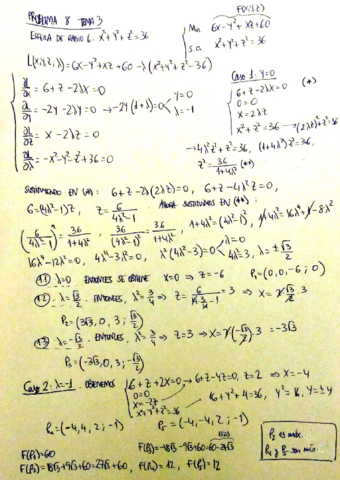 PROBLEMA 8 TEMA 3
F(x,y,z)
ESFERA DE RADIO 6: x²+y²+z²=36
Min 6x-y²+xz+60
s.a. x²+y²+z²=36
L(x,y,z,λ)=6x-y²+xz+60-λ(x²+y²+z²-36)
∂/∂x = 6+z-2λx=0
∂/∂y = -2y-2λy=0 → -2y(1+λ)=0 y=0 λ=-1
∂/∂z = x-2λz=0
∂/∂λ = -x²-y²-z²+36=0
Caso 1: y=0
6+z-2λx=0 (*)
0=0
x=2λz
x²+z²=36 → (2λz)²+z²=36
→ 4λ²z²+z²=36, (1+4λ²)z²=36,
z²=36/(1+4λ²) (**)
SUSTITUYENDO EN (*): 6+z-2λ(2λz)=0, 6+z-4λ²z=0,
6=(4λ²-1)z, z=6/(4λ²-1) AHORA SUSTITUIMOS EN (**):
(6/(4λ²-1))²=36/(1+4λ²), 36/(4λ²-1)²=36/(1+4λ²), 1+4λ²=(4λ²-1)², 1+4λ²=16λ⁴+1-8λ²
16λ⁴-12λ²=0, 4λ⁴-3λ²=0, λ²(4λ²-3)=0 λ=0 4λ²=3, λ=±√3/2
1.1 λ=0 ENTONCES SE OBTIENE x=0 ⇒ z=-6 P₁=(0,0,-6;0)
1.2 λ=√3/2. ENTONCES, λ²=3/4 ⇒ z=6/(4·3/4-1)=3 ⇒ x=2·√3/2·3
P₂=(3√3,0,3;√3/2)
1.3 λ=-√3/2. ENTONCES, λ²=3/4 ⇒ z=3 ⇒ x=2(-√3/2)·3=-3√3
P₃=(-3√3,0,3;-√3/2)
Caso 2: λ=-1. OBTENEMOS 6+z+2x=0 → 6+z-4z=0, z=2 ⇒ x=-4
0=0
x=-2z
x²+y²+z²=36 → 16+y²+4=36, y²=16, y=±4
P₄=(-4,4,2;-1) P₅=(-4,-4,2;-1)
F(P₁)=60 F(P₃)=-18√3-9√3+60=60-27√3
F(P₂)=18√3+9√3+60=27√3+60, F(P₄)=12, F(P₅)=12
P₂ es máx.
P₄ y P₅ son mín.